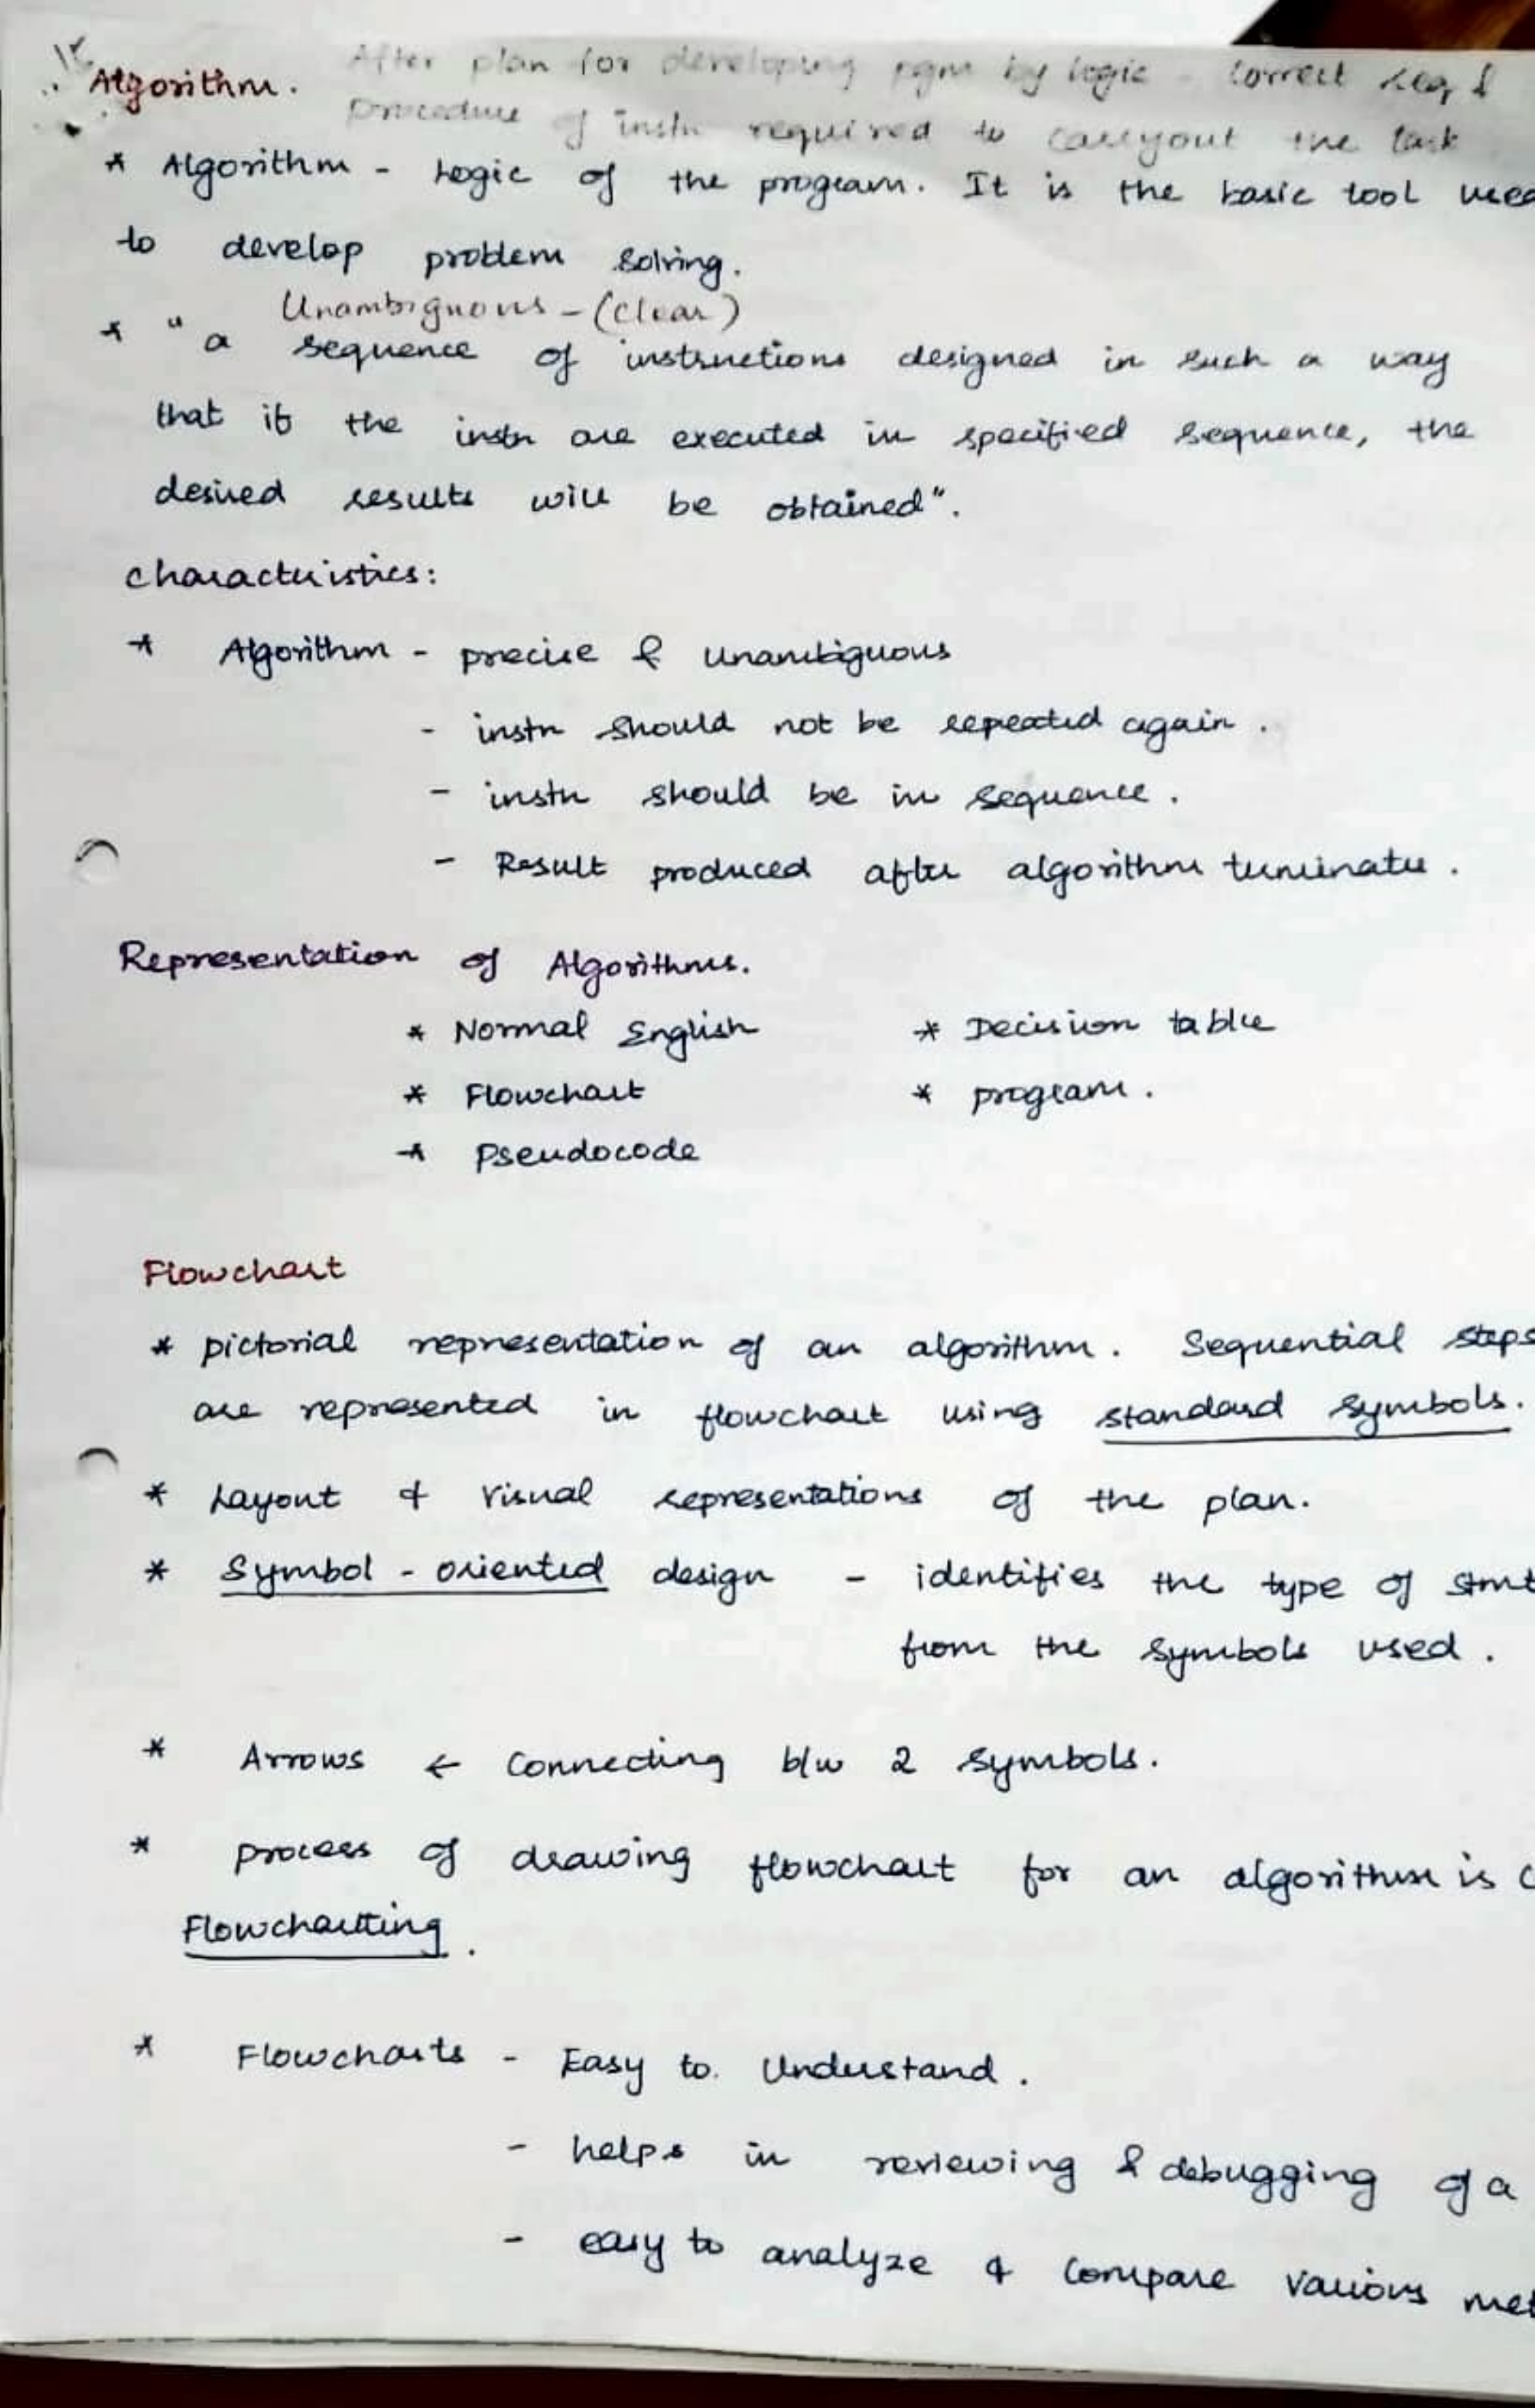 Algorithm.
After plan for developing pgm by logic - correct seq &
procedure of instn required to carryout the task
* Algorithm - Logic of the program. It is the basic tool used
to develop problem solving.
Unambiguous - (clear)
* "a sequence of instructions designed in such a way
that if the instn are executed in specified sequence, the
desired results will be obtained".
characteristics:
* Algorithm - precise & unambiguous
- instn should not be repeated again.
- instn should be in sequence.
- Result produced after algorithm terminate.
Representation of Algorithms.
* Normal English * Decision table
* Flowchart * program.
* Pseudocode
Flowchart
* pictorial representation of an algorithm. Sequential steps
are represented in flowchart using standard symbols.
* Layout & visual representations of the plan.
* Symbol-oriented design - identifies the type of stmt
from the symbols used.
* Arrows ← Connecting b/w 2 symbols.
* process of drawing flowchart for an algorithm is
Flowcharting.
* Flowcharts - Easy to understand.
- helps in reviewing & debugging of a
- easy to analyze & compare various